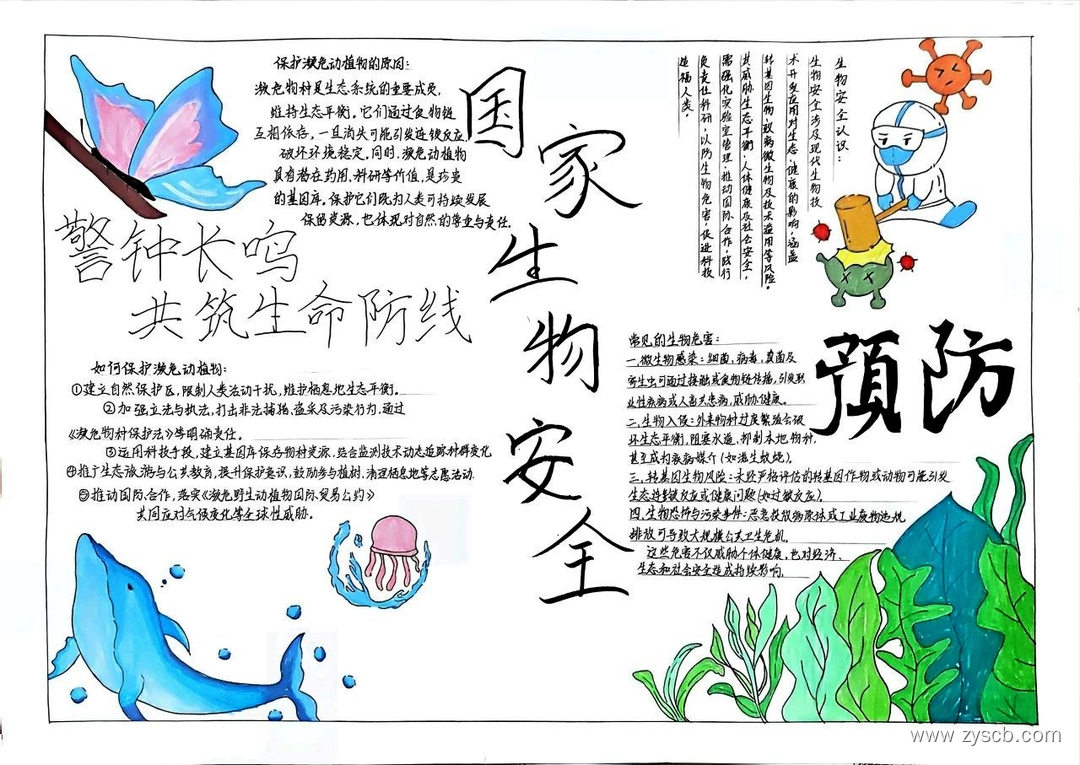 保护濒危动植物的原因:
濒危物种是生态系统的重要成员,
维持生态平衡。它们通过食物链
互相依存,一旦消失可能引发连锁反应,
破坏环境稳定。同时,濒危动植物
具有潜在药用、科研等价值,是珍贵
的基因库,保护它们既为人类可持续发展
保留资源,也体现对自然的尊重与责任。
国家生物安全
生物安全认识:
生物安全涉及现代生物技
术开发应用对生态、健康的影响,涵盖
转基因生物、致病微生物及技术滥用等风险。
其威胁生态平衡、人体健康及社会安全,
需强化实验室管理,推动国际合作,践行
负责任科研,以防生物危害,促进科技
造福人类。
警钟长鸣
共筑生命防线
如何保护濒危动植物:
①建立自然保护区,限制人类活动干扰,维护栖息地生态平衡。
②加强立法与执法,打击非法捕猎、盗采及污染行为,通过
《濒危物种保护法》等明确责任。
③运用科技手段,建立基因库保存物种资源,结合监测技术动态追踪种群变化
④推广生态旅游与公共教育,提升保护意识,鼓励参与植树、清理栖息地等志愿活动.
⑤推动国际合作,落实《濒危野生动植物国际贸易公约》
共同应对气候变化等全球性威胁。
預防
常见的生物危害:
一.微生物感染:细菌,病毒,真菌及
寄生虫可通过接触或食物链传播,引发职
业性疾病或人畜共患病,威胁健康。
二.生物入侵:外来物种过度繁殖会破
坏生态平衡,阻塞水道、抑制本地物种,
甚至成为疾病媒介(如滋生蚊蝇)。
三.转基因生物风险:未经严格评估的转基因作物或动物可能引发
生态连锁反应或健康问题(如过敏反应)。
四.生物恐怖与污染事件:恶意投放病原体或工业废物违规
排放可导致大规模公共卫生危机。
这些危害不仅威胁个体健康,也对经济、
生态和社会安全造成持续影响。
www.zyscb.com